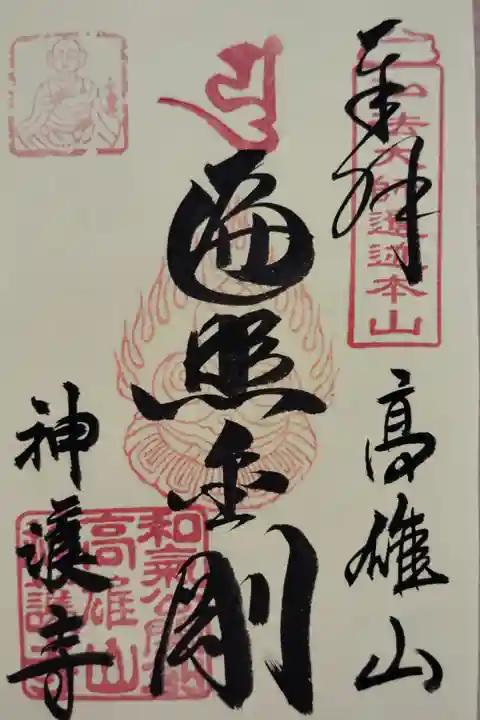 奉拜
高雄山
弘法大師遺迹本山
遍照金剛
神護寺
和氣公
高雄山
神護寺